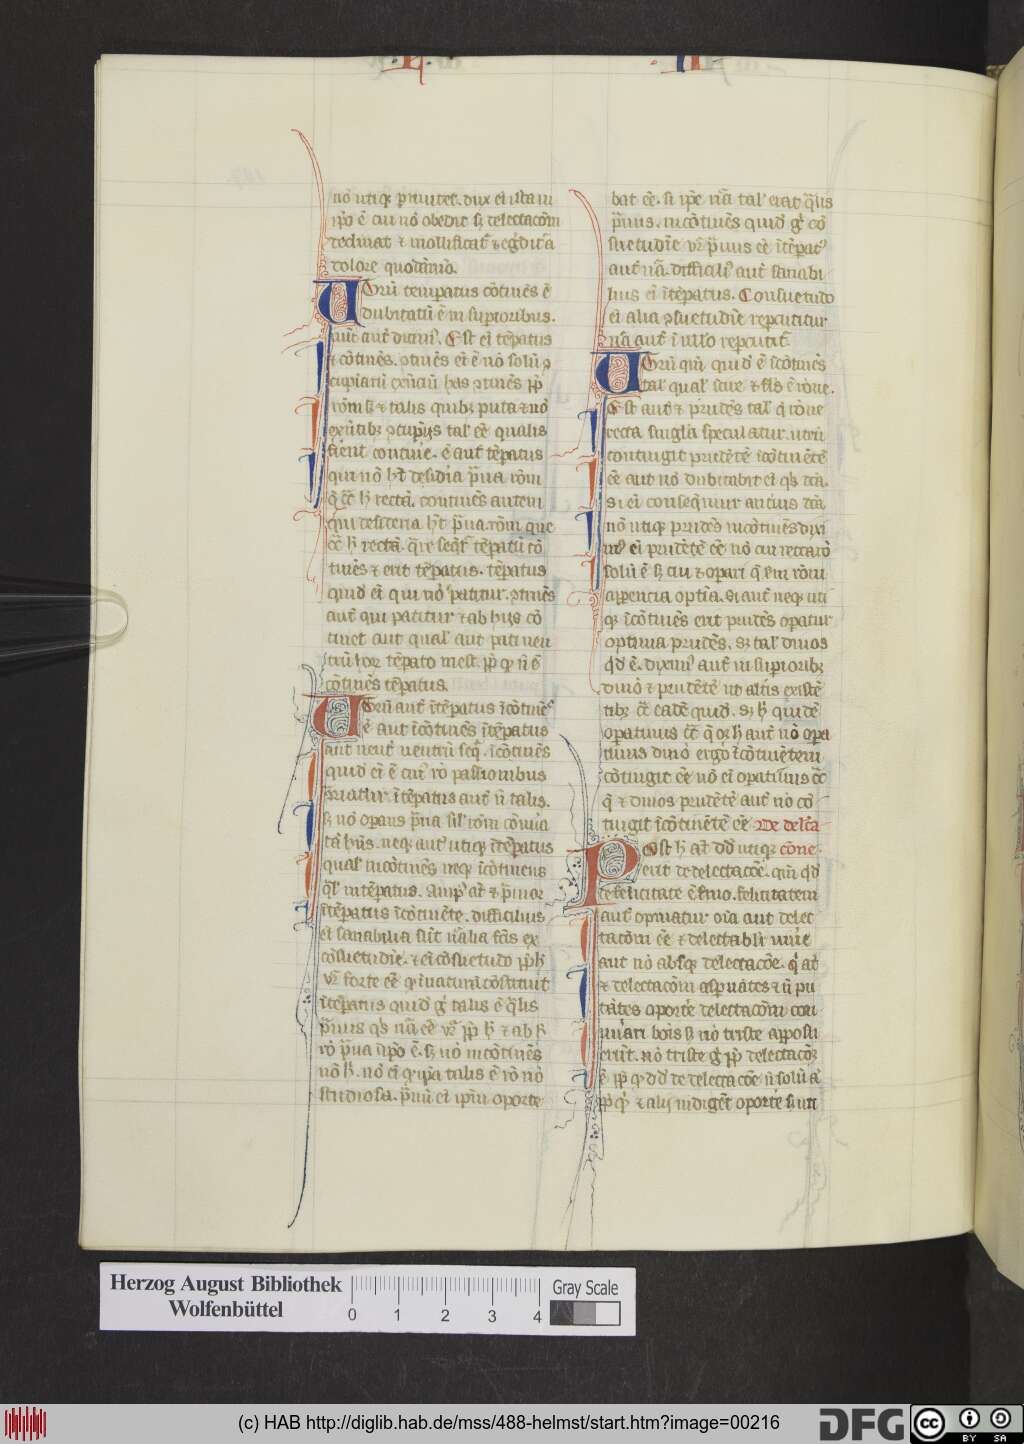 nō utiq̢ p̄nutet. dux ei ista in
ip̄o ē cui nō obedit sꝫ delectacōm
declinat ⁊ mollificat᷑ ⁊ eg̃dit᷑ a
dolore quodāmo.
Utrū temperatus cōtinēs ē
dubitatū ē in supioribus.
nūc aut̄ dicim᷒. Est ei tēpatus
⁊ cōtinēs. ꝯtinēs ei ē nō solū ꝯ
cupiarū exn̄ciū has ꝯtinēs ꝓp̄
rōm sꝫ ⁊ talis quibꝫ puta ⁊ nō
exn̄tibꝫ ꝯcupijs tal᷒ eē qualis
fient contine. ē aut̄ tēpatus
qui nō hꝫ desidia p̄ua rōm
q̄ c̄c̄ h̄ rectā. continēs autem
qui desideria hꝫ p̄ua. rōm que
c̄c̄ h̄ rectā. q̄re seq̄t᷑ tēpatū cō
tinēs ⁊ erit tēpatus. tēpatus
quid ei qui nō patitur. ꝯtinēs
aut̄ qui patitur ⁊ ab hijs cō
tinet aut qual᷒ aut pati neu
trū hor᷒ tēpato inest. ꝓp̄ qꝫ n̄ ē
cōtinēs tēpatus.
Utrū aut̄ ītēpatus īcōtinēs
ē aut īcōtinēs ītēpatus
aut neut᷑ neutrū seq̄. īcōtinēs
quid ei ē cui᷒ rō passionibus
ītēpatus aut̄ n̄ talis.
sꝫ nō opans p̄ua sil᷒ rōm cōnua
tā hn̄s. neqꝫ aut᷑ utiqꝫ ītēpatus
qual᷒ incōtinēs neqꝫ īcōtinens
q̄l᷒ intēpatus.
ītēpatus īcōtinēte. difficilius
ei sanabilia sūt n̄alia fc̄is ex
cōsuetudīe. ⁊ ei cōsuetudo ꝓp̄ h̄
vr̄ forte eē qꝫ natura cōstituit
ītēpatus quid g᷑ talis ē q̄lis
p̄uus q̄s nā eē vr̄ ꝓp̄ h̄ ⁊ ab h̄
rō p̄ua ip̄o ē. sꝫ nō incōtinēs
nō h̄. nō ei qꝫ ip̄a talis ē rō nō
studiosa. p̄uū ei ip̄m oporte
bat eē. si ip̄e nā tal᷒ erat q̄lis
p̄uus. incōtinēs quid g᷑ cō
suetudīe vr̄ p̄uus eē ītēpat᷒
aut̄ nā. difficili᷒ aut̄ sanabi
lius ei ītēpatus. Consuetudo
ei alia ꝯsuetudīe repcutitur
nā aut̄ ī ullo repcutit᷑
Utrū qm̄ quid ē īcōtinēs
tal᷒ qual᷒ scire ⁊ fls̄ ē rōne.
Est aut̄ ⁊ prudēs tal᷒ q̄ rōne
recta singla speculatur. utrū
contingit prudētē īcōtinētē
eē aut nō dubitabit ei q̄s dc̄a.
si ei conseq̄mur anci᷒ dc̄a
nō utiqꝫ prudēs incōtinēs dixi
m᷒ ei prudētē eē nō cui recta rō
solū ē sꝫ cui ⁊ opari q̄ sm̄ rōm
apperencia optīa. si aut̄ neqꝫ uti
qꝫ īcōtinēs erit prudēs opatur
optima prudēs. sꝫ tal᷒ dinos
q̄d ē. dixim᷒ aut̄ in supioribꝫ
dinō ⁊ prudētē ut altis existē
tibꝫ c̄c̄ eadē quid. sꝫ h̄ quidē
opatiuus c̄c̄ q̄ oꝫ h̄ aut̄ nō opa
tiuus dinō ergo īcōtinētem
cōtingit eē nō ei opatiuus c̄c̄
q̄ ⁊ dinos prudētē aut̄ nō cō
tingit īcōtinētē eē De delc̄a
Post h̄ at᷑ dd̄ utiqꝫ cōne.
erit de delectacōe. qm̄ q̄d
de felicitate ē s̄mo. felicitatem
aut̄ opinatur oīa aut delec
tacōm eē ⁊ delectabl᷒r uiūe
aut nō absqꝫ delectacōe. q̄ at᷑
⁊ delectacōm aspnātes ⁊ n̄ pu
tātes oporte᷑ delectacōm con
nu᷒ari bōis sꝫ nō triste apposu
erūt. nō triste g᷑ ꝓp̄ delectacōꝫ
ē ꝓp̄ qꝫ dd̄ de delectacōe n̄ solū a᷑
ꝓp̄ qꝫ ⁊ alij indigēt oporte᷑ sum
Herzog August Bibliothek
Wolfenbüttel
0 1 2 3 4
Gray Scale
(c) HAB http://diglib.hab.de/mss/488-helmst/start.htm?image=00216
DFG
cc BY SA